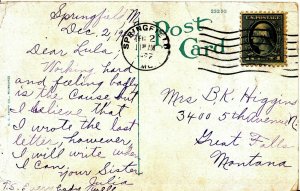 Springfield M
Dec 2, 19
Dear Lula
Working hard
and feeling badly
is the cause but
I believe that
I wrote the last
letter, however,
I will write when
I can, your Sister
Julia
P.S. Everybody well
Post
Card
SPRINGFIELD
MO.
U.S. POSTAGE
Mrs B.K. Higgins
3400 5th Avenue N.
Great Falls
Montana